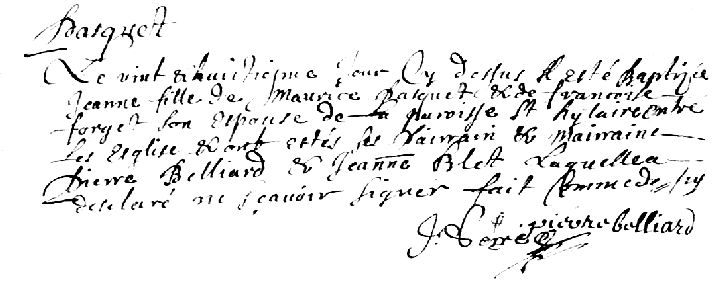 Pasquet
Le vint & huictiesme Jour Cy dessus A esté Baptisée
Jeanne fille de Maurice Pasquet & de francoise
forget son espouse de La paroisse St hylaire entre
Les Esglise & ont estés ses Pairrain & Mairraine
Pierre Belliard & Jeanne Blet Laquelle a
desclaré ne scavoir signer fait Comme dessus
pierre belliard